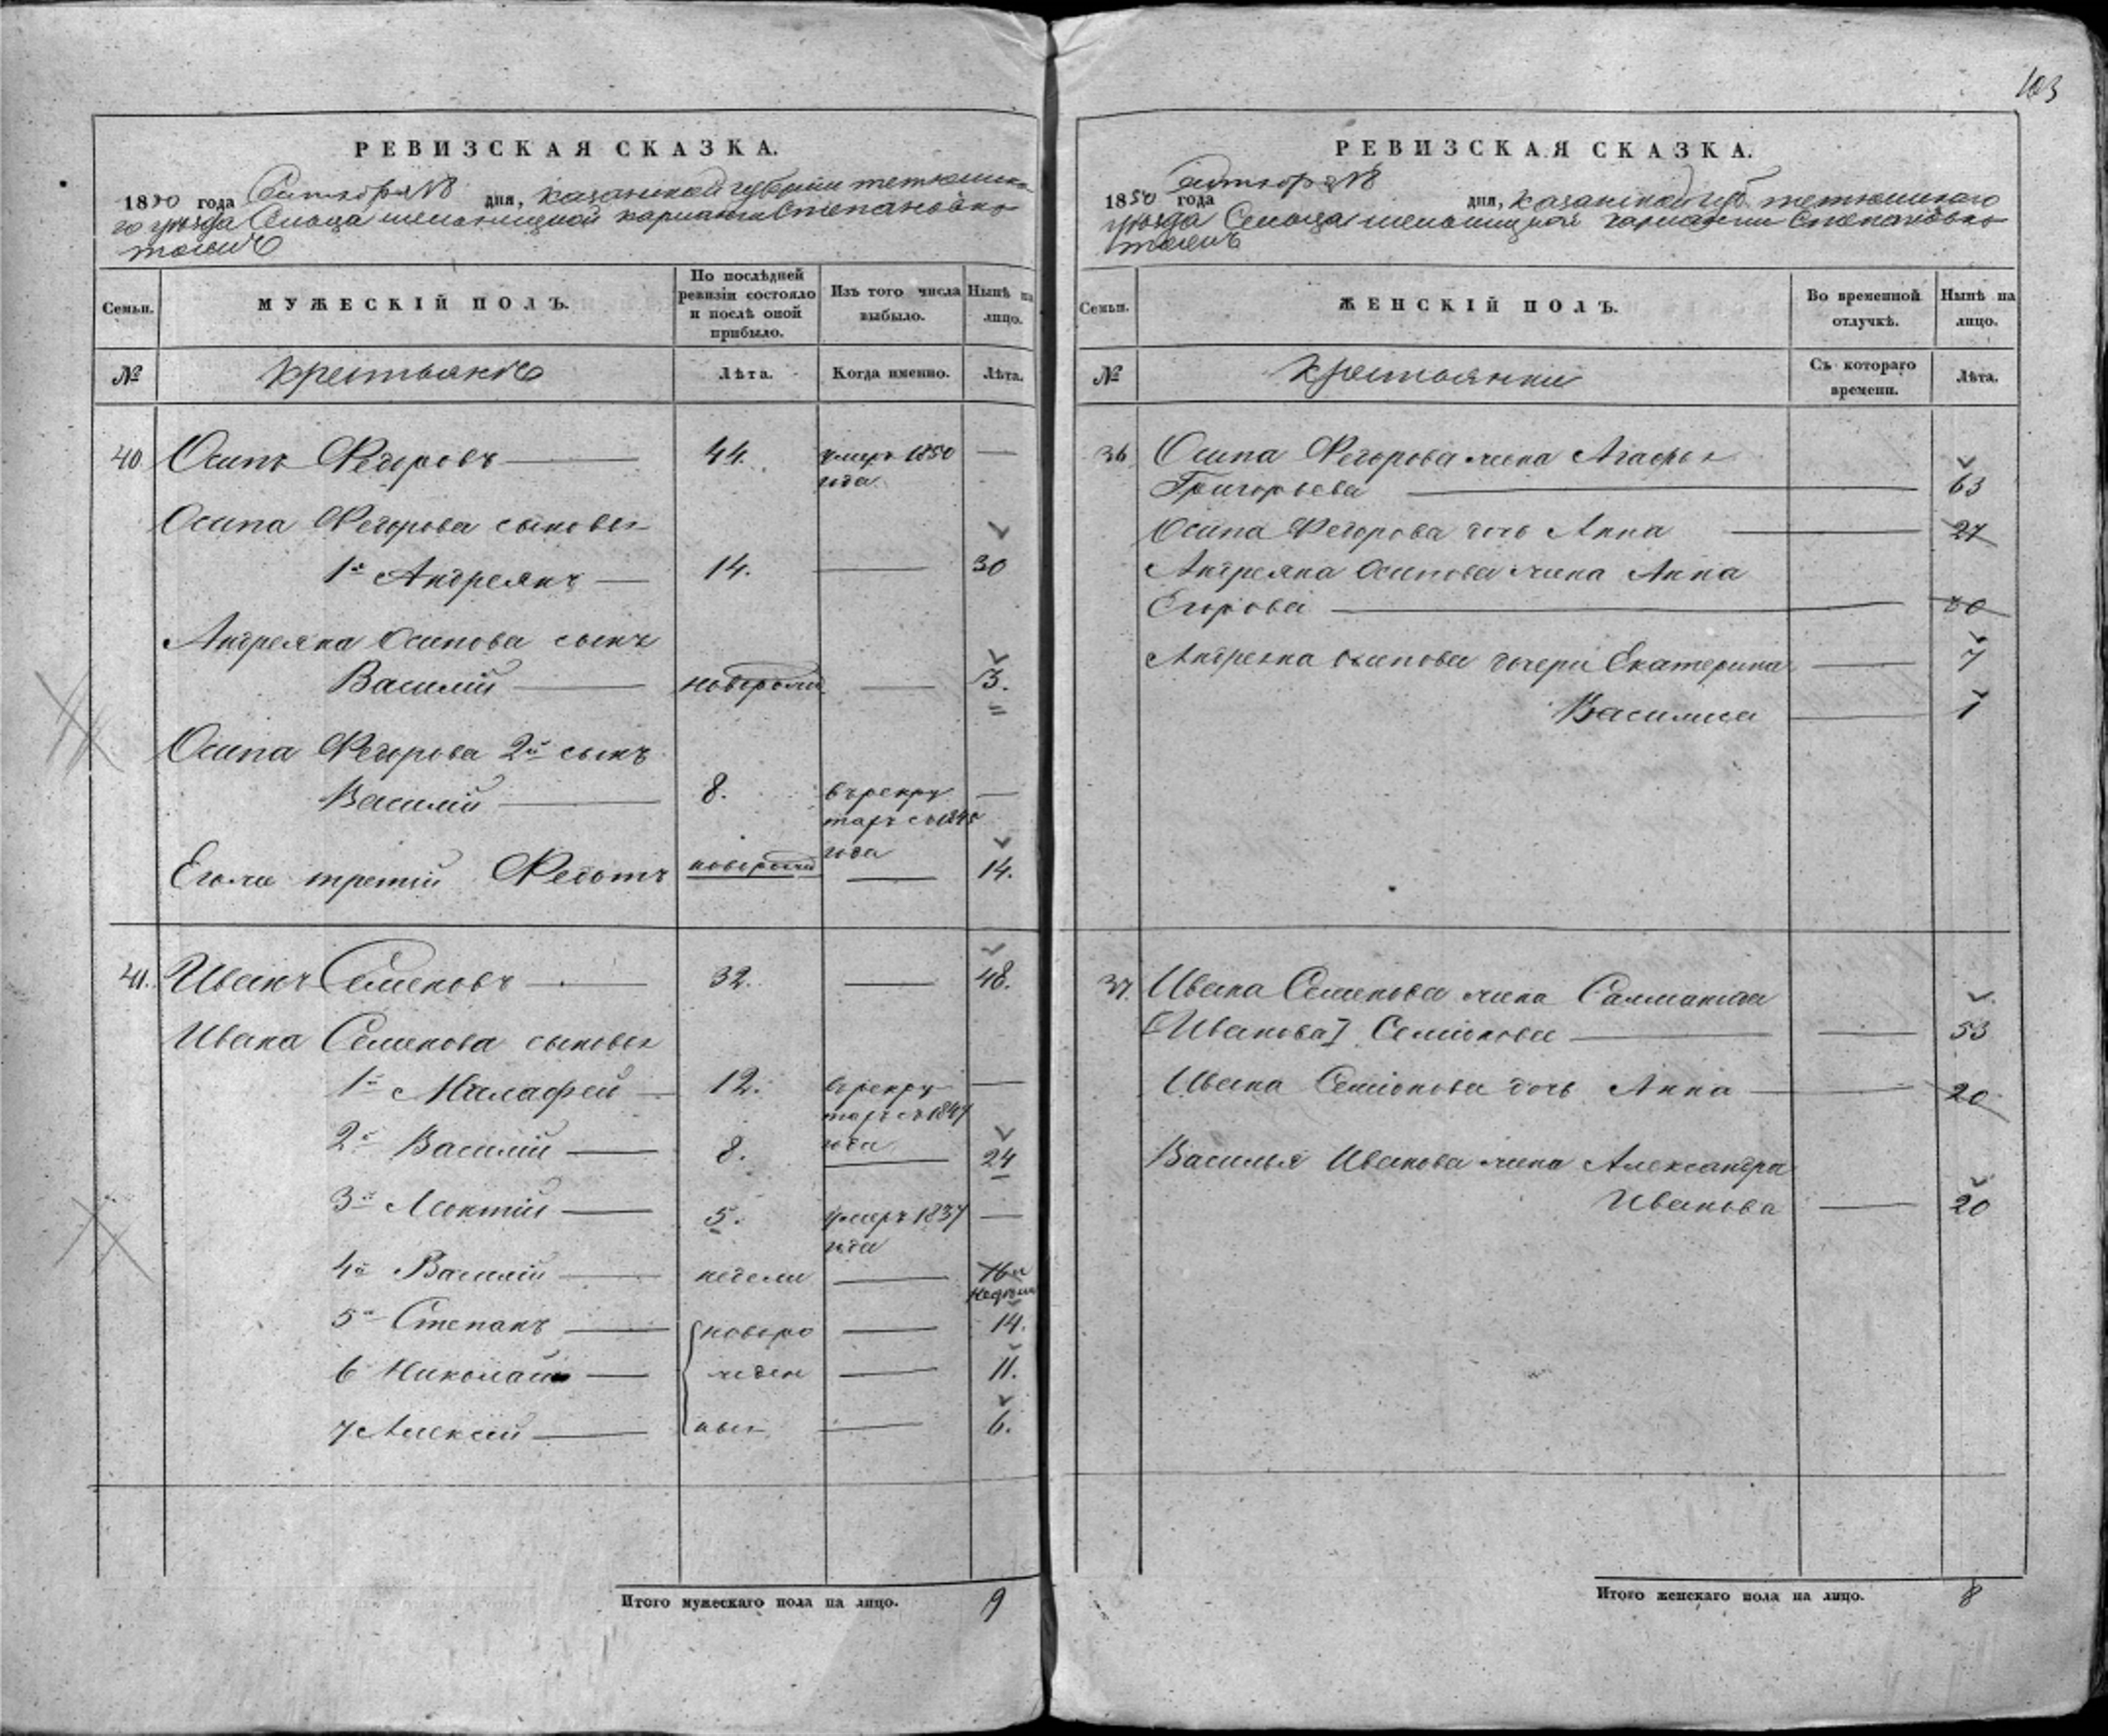 103
РЕВИЗСКАЯ СКАЗКА.
1850 года Октября 18 дня, Казанской губернии тетюшска
го уезда Сельца
тожъ
Семьи.
МУЖЕСКІЙ ПОЛЪ.
По послѣдней ревизіи состояло и послѣ оной прибыло.
Изъ того числа выбыло.
Нынѣ на лицо.
№
крестьяне
Лѣта.
Когда именно.
Лѣта.
40. Осипъ Федоровъ 44. умеръ 1850 —
года
Осипа Федорова сыновья
1й Андреянъ 14. — 30
Андреяна Осипова сынъ
Василій новорожд — 3.
Осипа Федорова 2й сынъ
Василій 8. въ рекру —
тахъ съ 1845
года
Егоже третій Федотъ новорожд — 14.
41. Иванъ Семеновъ 32. — 48.
Ивана Семенова сыновья
1й Малафей 12. въ рекру —
тахъ съ 1847
года
2й Василій 8. — 24
3й 5. умеръ 1837 —
года
4й Василій недели — 16 и
недели
5й Степанъ новоро — 14.
6 Николай жден — 11.
7 Алексей ные — 6.
Итого мужескаго пола на лицо. 9
РЕВИЗСКАЯ СКАЗКА.
1850 года октября 18 дня, Казанской губ. тетюшскаго
уезда Сельца
тожъ
Семьи.
ЖЕНСКІЙ ПОЛЪ.
Во временной отлучкѣ.
Нынѣ на лицо.
№
крестьянки
Съ котораго времени.
Лѣта.
36 Осипа Федорова жена Агафья
Григорьева — 63
Осипа Федорова дочь Анна — 27
Андреяна Осипова жена Анна
Егорова — 30
Андреяна Осипова дочери Екатерина — 7
Василиса — 1
37. Ивана Семенова жена
[Иванова] Семионова — 53
Ивана Семионова дочь Анна — 20
Василья Иванова жена Александра
Иванова — 20
Итого женскаго пола на лицо. 8